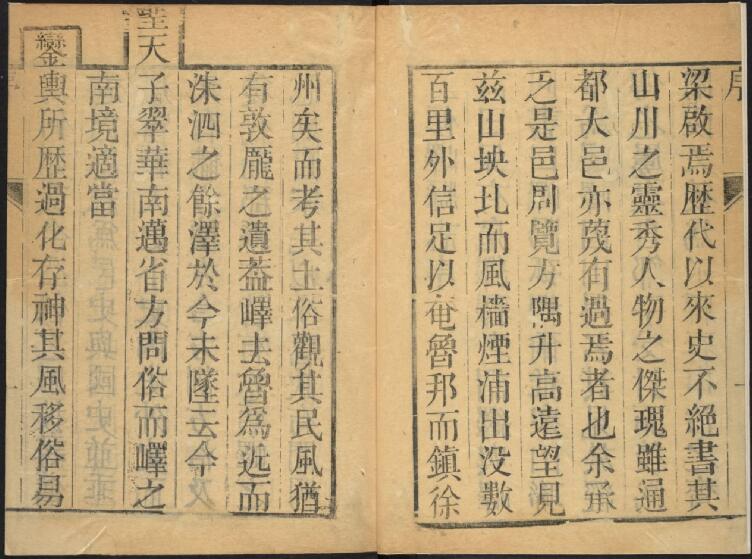 序
梁啟焉歷代以來史不絕書其
山川之靈秀人物之傑瑰雖通
都大邑亦蔑有過焉者也余承
之是邑周覽方隅升高遠望見
茲山坱圠而風檣煙浦出没數
百里外信足以奄魯邦而鎮徐
州矣而考其土俗觀其民風猶
有敦龐之遺蓋嶧去魯為近而
洙泗之餘澤於今未墜云今
聖天子翠華南邁省方問俗而嶧之
南境適當
鑾輿所歷過化存神其風移俗易